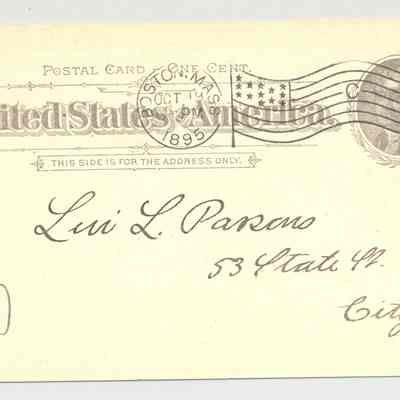 POSTAL CARD - ONE CENT.
United States of America.
BOSTON, MASS.
OCT
PM
1895
THIS SIDE IS FOR THE ADDRESS ONLY.
Levi L. Parsons
53 State St.
City